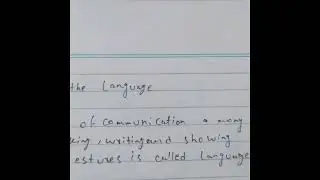 the Language
of communication a mong
king, writing and showing
estures is called Language